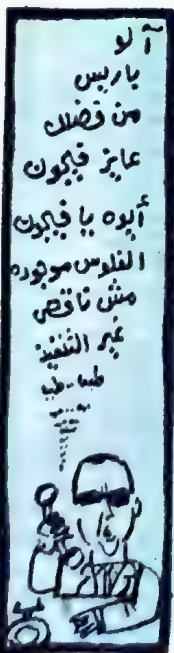 آلو
باريس
من فضلك
عايز فيجون
أيوه يا فيجون
الفلوس موجوده
مش ناقص
غير التنفيذ
طبعا.. طبعا